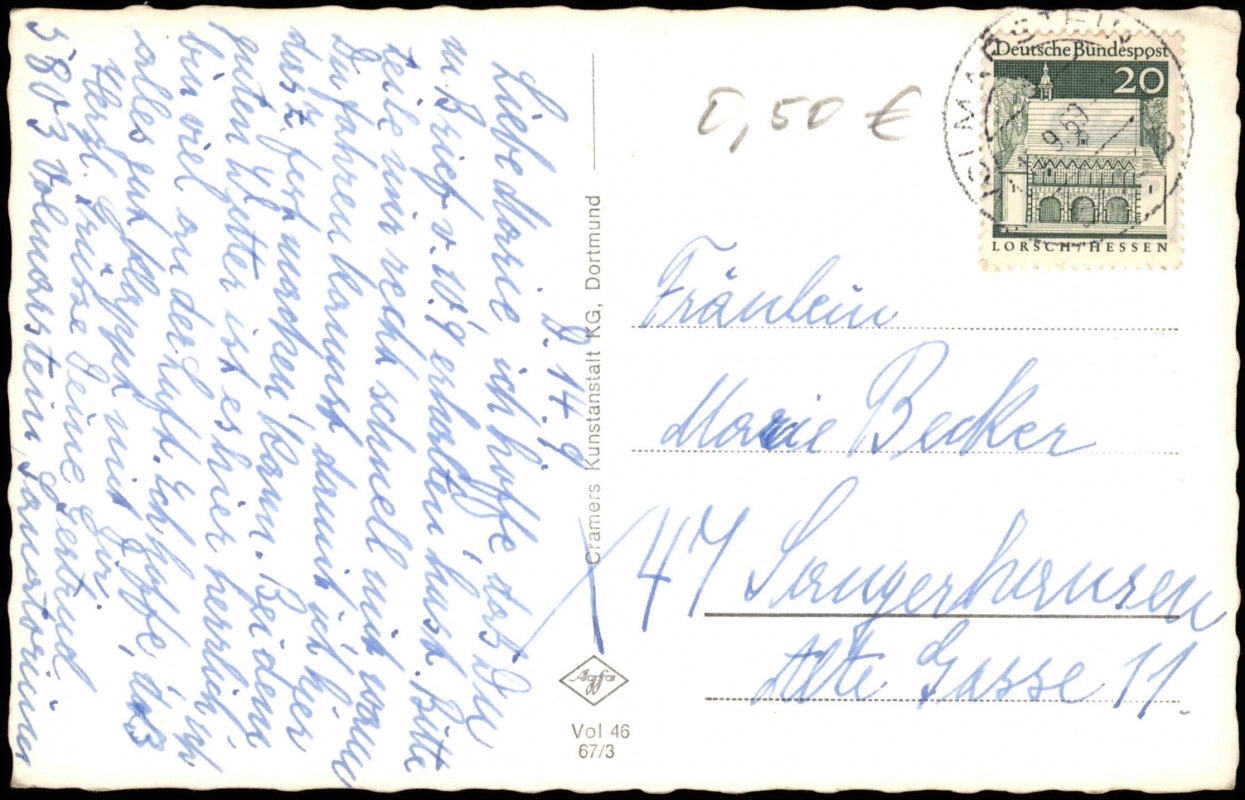 D. 14.9.
Liebe Marie ich hoffe dass Du
m Brief v. 10/9 erhalten hast. Bitte
teile mir recht schnell mit wann
Du fahren kannst damit ich hier
alles fest machen kann. Bei dem
guten Wetter ist es hier herrlich, ich
bin viel an der Luft. Ich hoffe, daß
alles gut klappt mit Dir
Herzl. Grüsse Deine Gertrud
5803 Volmarstein Sanatorium
Cramers Kunstanstalt KG, Dortmund
Agfa
Vol 46
67/3
0,50 €
Deutsche Bundespost
20
LORSCH/HESSEN
VOLMARSTEIN
9.69
Fräulein
Marie Becker
47 Sangerhausen
Alte Gasse 11.